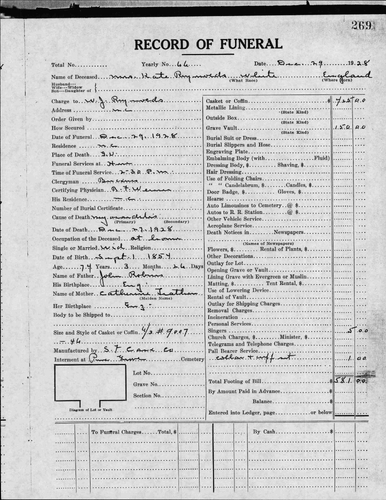 269
RECORD OF FUNERAL
Total No. Yearly No. 66 Date Dec. 29, 1928
Name of Deceased Mrs. Kate Reynolds White England
(What Race) (Where Born)
Husband—
Wife—Widow
Son—Daughter of
Charge to W. J. Reynolds
Address N.C.
Order Given by
How Secured
Date of Funeral Dec. 29, 1928
Residence N.C.
Place of Death
Funeral Services at Home
Time of Funeral Service 2:30 P.M.
Clergyman
Certifying Physician
His Residence N.C.
Number of Burial Certificate
Cause of Death
(Primary) (Secondary)
Date of Death Dec. 27, 1928
Occupation of the Deceased at home
Single or Married Wid Religion
Date of Birth Sept. 1 1854
Age 74 Years 3 Months 26 Days
Name of Father John Osborn
His Birthplace Eng
Name of Mother Catherine
(Maiden Name)
Her Birthplace Eng
Body to be Shipped to
Size and Style of Casket or Coffin 6/3 # 9007
Manufactured by S. F. Co.
Interment at Cemetery
Lot No.
Grave No.
Section No.
Diagram of Lot or Vault
Casket or Coffin $ 425 00
Metallic Lining
(State Kind)
Outside Box
(State Kind)
Grave Vault 150 00
(State Kind)
Burial Suit or Dress
Burial Slippers and Hose
Engraving Plate
Embalming Body (with Fluid)
Dressing Body, $ Shaving, $
Hair Dressing
Use of Folding Chairs
" " Candelabrum, $ Candles, $
Door Badge, $ Gloves, $
Hearse
Auto Limousines to Cemetery @ $
Autos to R. R. Station @ $
Other Vehicle Service
Aeroplane Service
Death Notices in Newspapers
(Names of Newspapers)
Flowers, $ Rental of Plants, $
Other Decorations
Outlay for Lot
Opening Grave or Vault
Lining Grave with Evergreen or Muslin
Matting, $ Tent Rental, $
Use of Lowering Device
Rental of Vault
Outlay for Shipping Charges
Removal Charges
Incineration
Personal Services
Singers 5 00
Church Charges, $ Minister, $
Telegrams and Telephone Charges
Pall Bearer Service
collar + 1 00
Total Footing of Bill $ 581 00
By Amount Paid in Advance
Balance
Entered into Ledger, page or below
To Funeral Charges Total, $ By Cash $